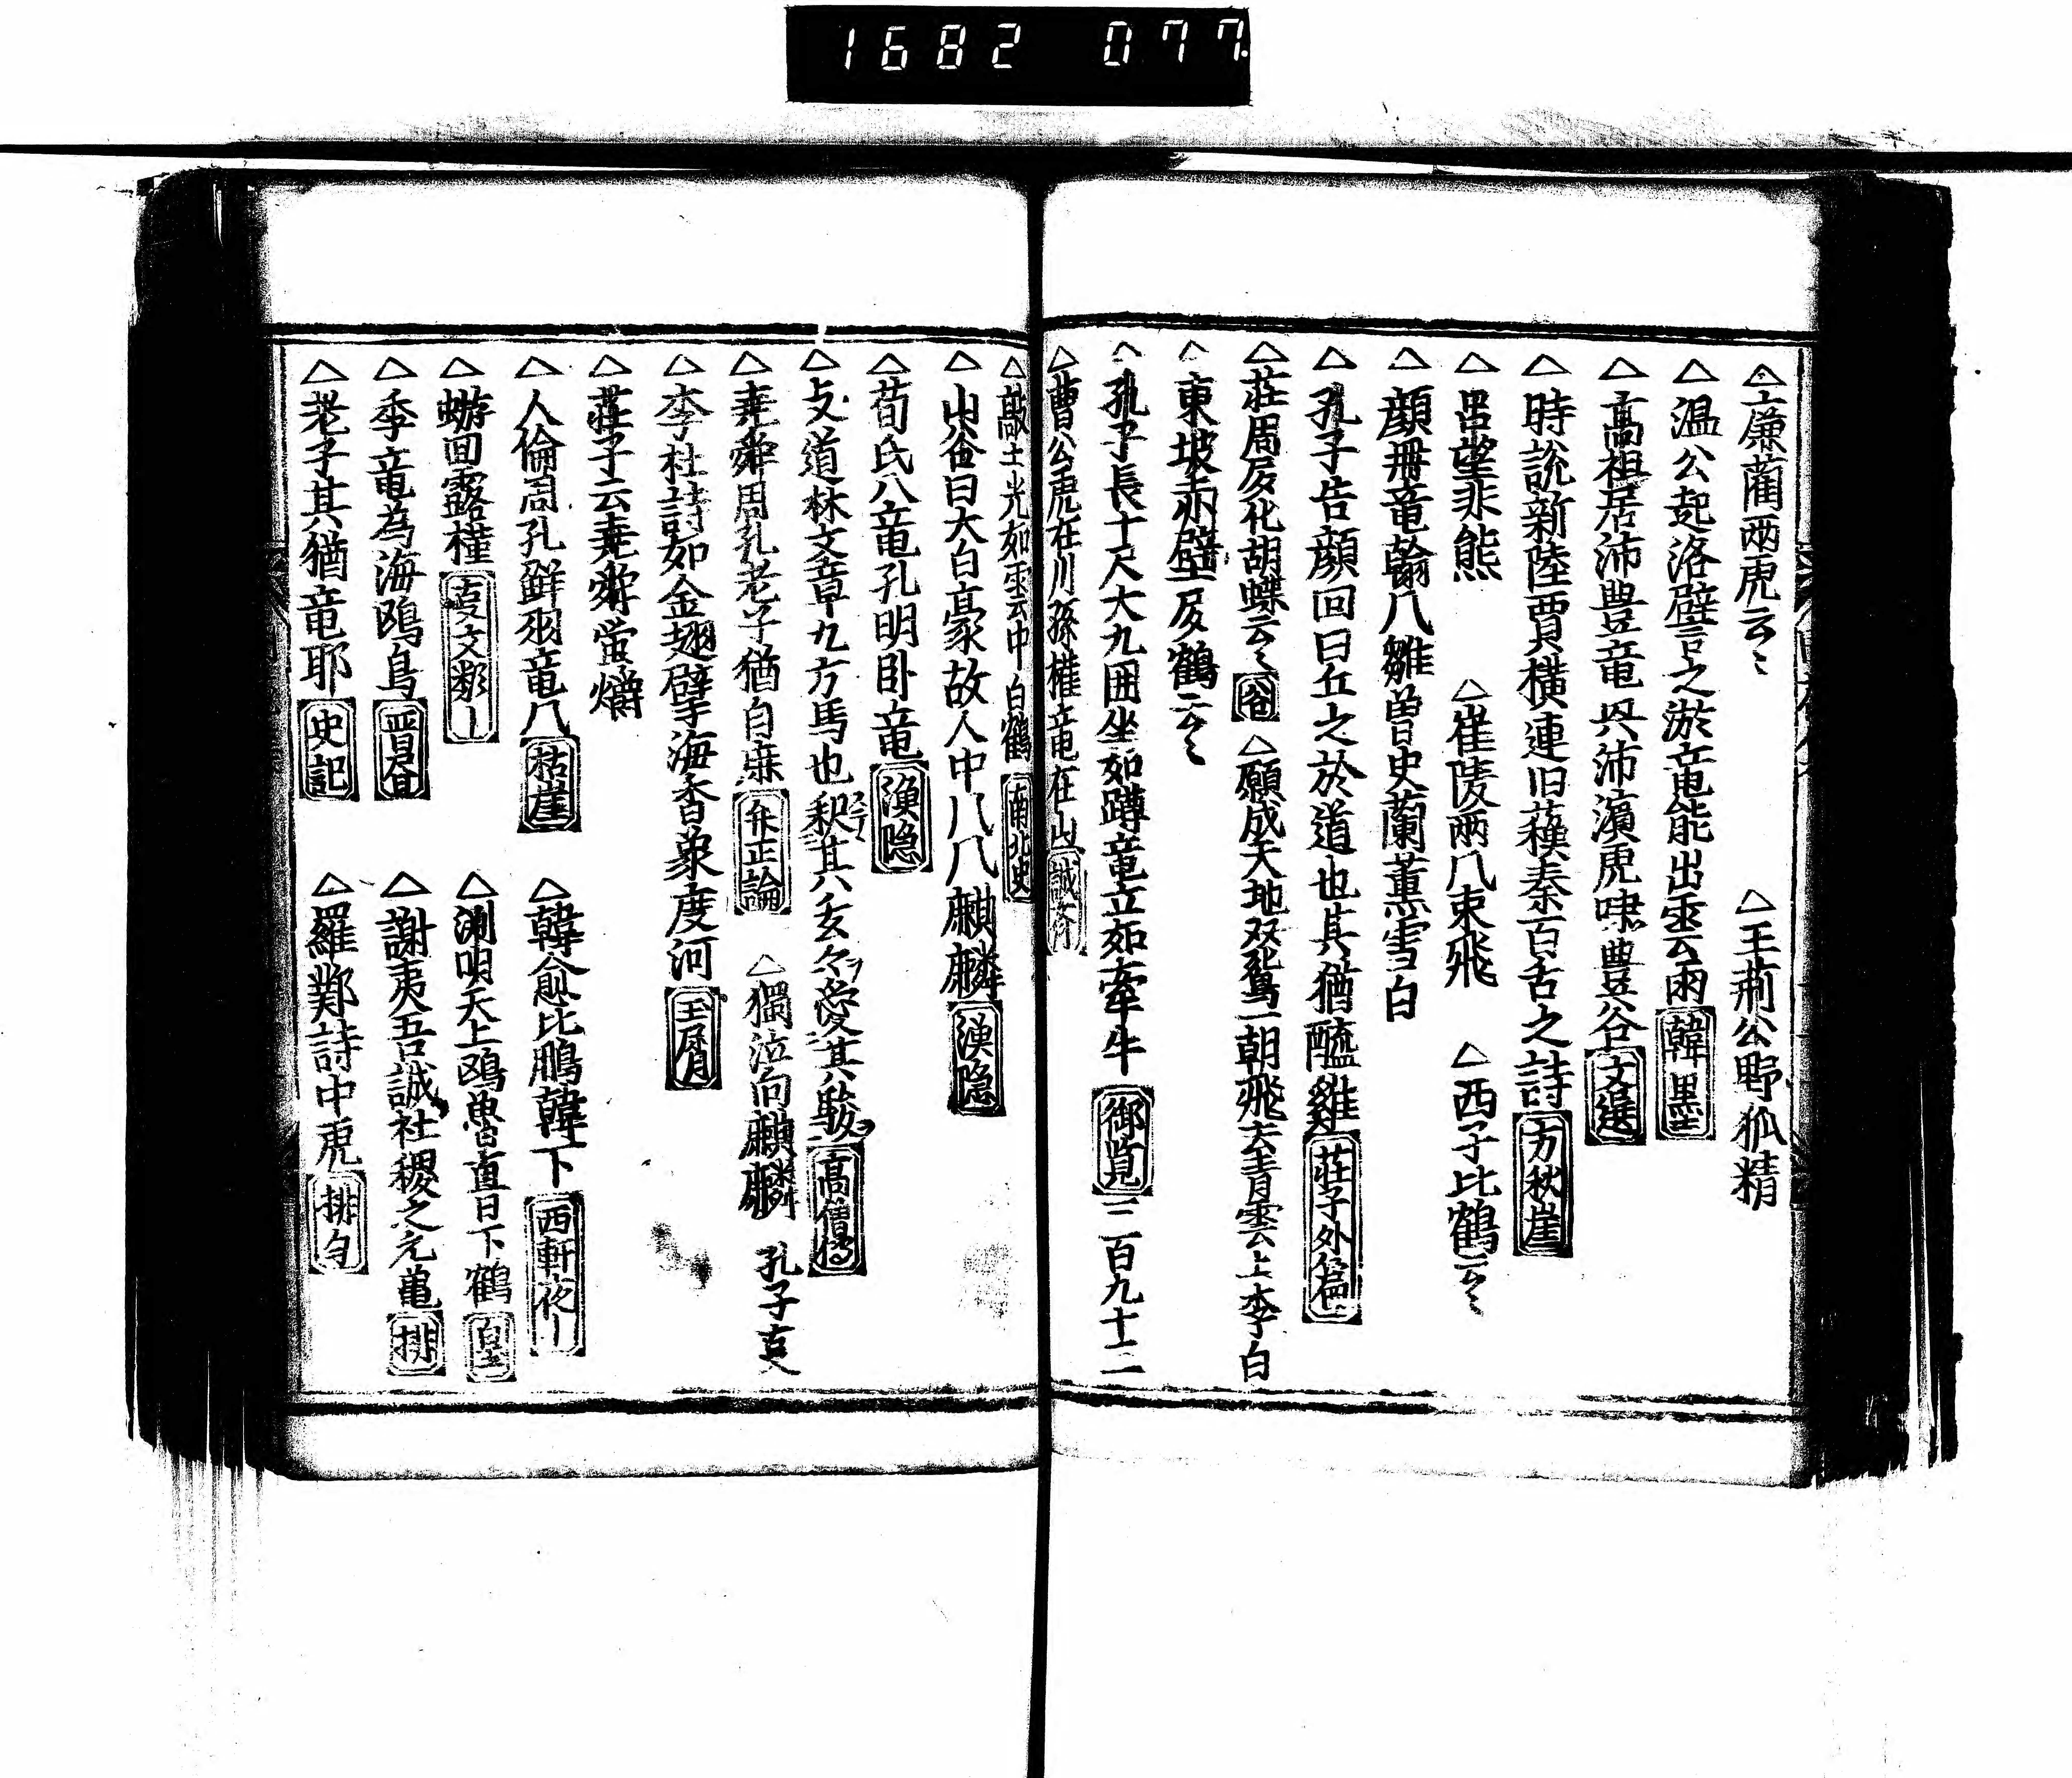 1682 077
△廉藺両虎云々 △王荊公野狐精
△温公起洛壁言之淤竜能出雲雨 韓墨
△高祖居沛豊竜興沛濵虎嘯豊谷 文選
△時説新陸賈横連旧蘓秦百舌之詩 方秋崖
△呂望非熊 △崔陵両八束飛 △西子比鶴云々
△顔冊竜翰八雛曽史蘭薫雪白
△孔子告顔回曰丘之於道也其猶醯雞 莊子外篇
△莊周反化胡蝶云々 谷 △願成天地双鴛一朝飛去青雲上李白
△東坡赤壁反鶴云々
△孔子長十尺大九囲坐如蹲竜立如牽牛 御覧三百九十二
△曹公虎在川孫権竜在山 誠斎
△敲士光如雲中白鶴 南北史
△山谷曰大白豪故人中八八麒麟 漁隠
△荀氏八竜孔明卧竜 漁隠
△支道林文章九方馬也 其玄々愛其駿 高僧傳
△尭舜周孔老子猶自麻 弁正論 △獨泣向麒麟 孔子
△李杜詩如金翅擘海香象度河 玉屑
△莊子云尭舜蛍爝
△人倫周孔鮮羽竜八 枯崖 △韓愈比鵬韓下 西軒夜丨
△蝣回露槿 文類丨 △渕明天上鴎魯直日下鶴
△季竜為海鴎鳥 晋書 △謝夷吾誠社稷之元亀 排
△老子其猶竜耶 史記 △羅鄴詩中虎 排句